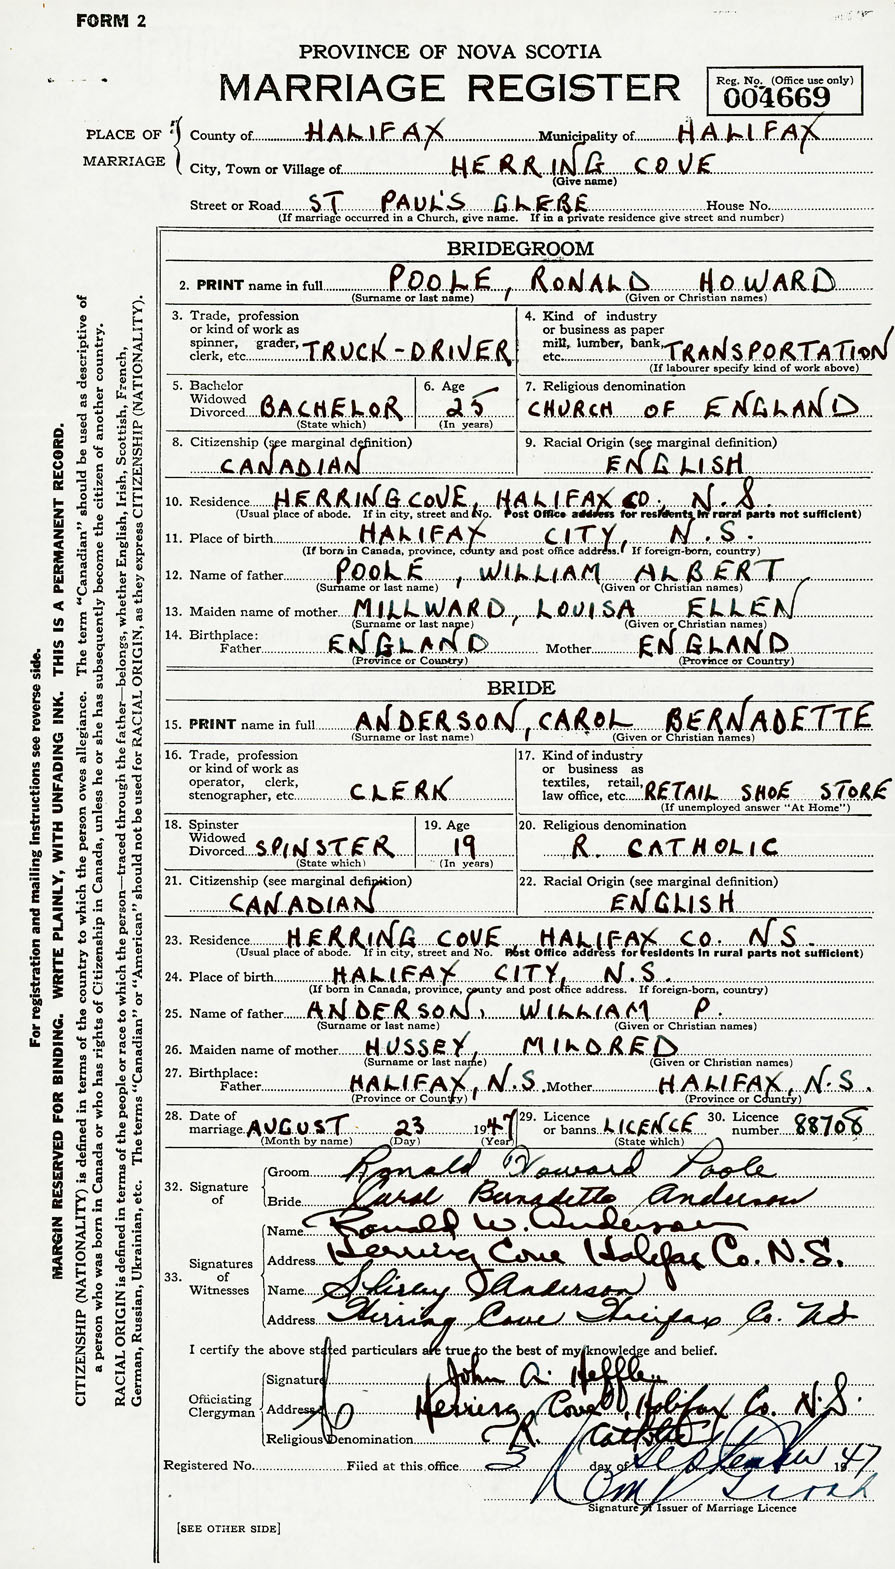 FORM 2
PROVINCE OF NOVA SCOTIA
MARRIAGE REGISTER
Reg. No. (Office use only)
004669
PLACE OF MARRIAGE
County of HALIFAX Municipality of HALIFAX
City, Town or Village of HERRING COVE
(Give name)
Street or Road ST PAUL'S GLEBE House No.
(If marriage occurred in a Church, give name. If in a private residence give street and number)
BRIDEGROOM
2. PRINT name in full POOLE, RONALD HOWARD
(Surname or last name) (Given or Christian names)
3. Trade, profession
or kind of work as
spinner, grader,
clerk, etc. TRUCK-DRIVER
4. Kind of industry
or business as paper
mill, lumber, bank,
etc. TRANSPORTATION
(If labourer specify kind of work above)
5. Bachelor
Widowed
Divorced BACHELOR
(State which)
6. Age
25
(In years)
7. Religious denomination
CHURCH OF ENGLAND
8. Citizenship (see marginal definition)
CANADIAN
9. Racial Origin (see marginal definition)
ENGLISH
10. Residence HERRING COVE, HALIFAX CO. N.S.
(Usual place of abode. If in city, street and No. Post Office address for residents in rural parts not sufficient)
11. Place of birth HALIFAX CITY, N.S.
(If born in Canada, province, county and post office address. If foreign-born, country)
12. Name of father POOLE, WILLIAM ALBERT
(Surname or last name) (Given or Christian names)
13. Maiden name of mother MILLWARD, LOUISA ELLEN
(Surname or last name) (Given or Christian names)
14. Birthplace:
Father ENGLAND Mother ENGLAND
(Province or Country) (Province or Country)
BRIDE
15. PRINT name in full ANDERSON, CAROL BERNADETTE
(Surname or last name) (Given or Christian names)
16. Trade, profession
or kind of work as
operator, clerk,
stenographer, etc. CLERK
17. Kind of industry
or business as
textiles, retail,
law office, etc. RETAIL SHOE STORE
(If unemployed answer "At Home")
18. Spinster
Widowed
Divorced SPINSTER
(State which)
19. Age
19
(In years)
20. Religious denomination
R. CATHOLIC
21. Citizenship (see marginal definition)
CANADIAN
22. Racial Origin (see marginal definition)
ENGLISH
23. Residence HERRING COVE, HALIFAX CO. N.S.
(Usual place of abode. If in city, street and No. Post Office address for residents in rural parts not sufficient)
24. Place of birth HALIFAX CITY, N.S.
(If born in Canada, province, county and post office address. If foreign-born, country)
25. Name of father ANDERSON, WILLIAM P.
(Surname or last name) (Given or Christian names)
26. Maiden name of mother HUSSEY, MILDRED
(Surname or last name) (Given or Christian names)
27. Birthplace:
Father HALIFAX, N.S. Mother HALIFAX, N.S.
(Province or Country) (Province or Country)
28. Date of
marriage AUGUST 23 1947
(Month by name) (Day) (Year)
29. Licence
or banns LICENCE
(State which)
30. Licence
number 88708
32. Signature of
Groom Ronald Howard Poole
Bride Carol Bernadette Anderson
33. Signatures of Witnesses
Name Ronald W. Anderson
Address Herring Cove Halifax Co. N.S.
Name Shirley Anderson
Address Herring Cove Halifax Co. NS
I certify the above stated particulars are true to the best of my knowledge and belief.
Officiating Clergyman
Signature John A. Heffler
Address Herring Cove, Halifax Co. N.S.
Religious Denomination R. Catholic
Registered No. Filed at this office 3 day of September 1947
Signature of Issuer of Marriage Licence
[SEE OTHER SIDE]
For registration and mailing instructions see reverse side.
MARGIN RESERVED FOR BINDING. WRITE PLAINLY, WITH UNFADING INK. THIS IS A PERMANENT RECORD.
CITIZENSHIP (NATIONALITY) is defined in terms of the country to which the person owes allegiance. The term "Canadian" should be used as descriptive of
a person who was born in Canada or who has rights of Citizenship in Canada, unless he or she has subsequently become the citizen of another country.
RACIAL ORIGIN is defined in terms of the people or race to which the person—traced through the father—belongs, whether English, Irish, Scottish, French,
German, Russian, Ukrainian, etc. The terms "Canadian" or "American" should not be used for RACIAL ORIGIN, as they express CITIZENSHIP (NATIONALITY).